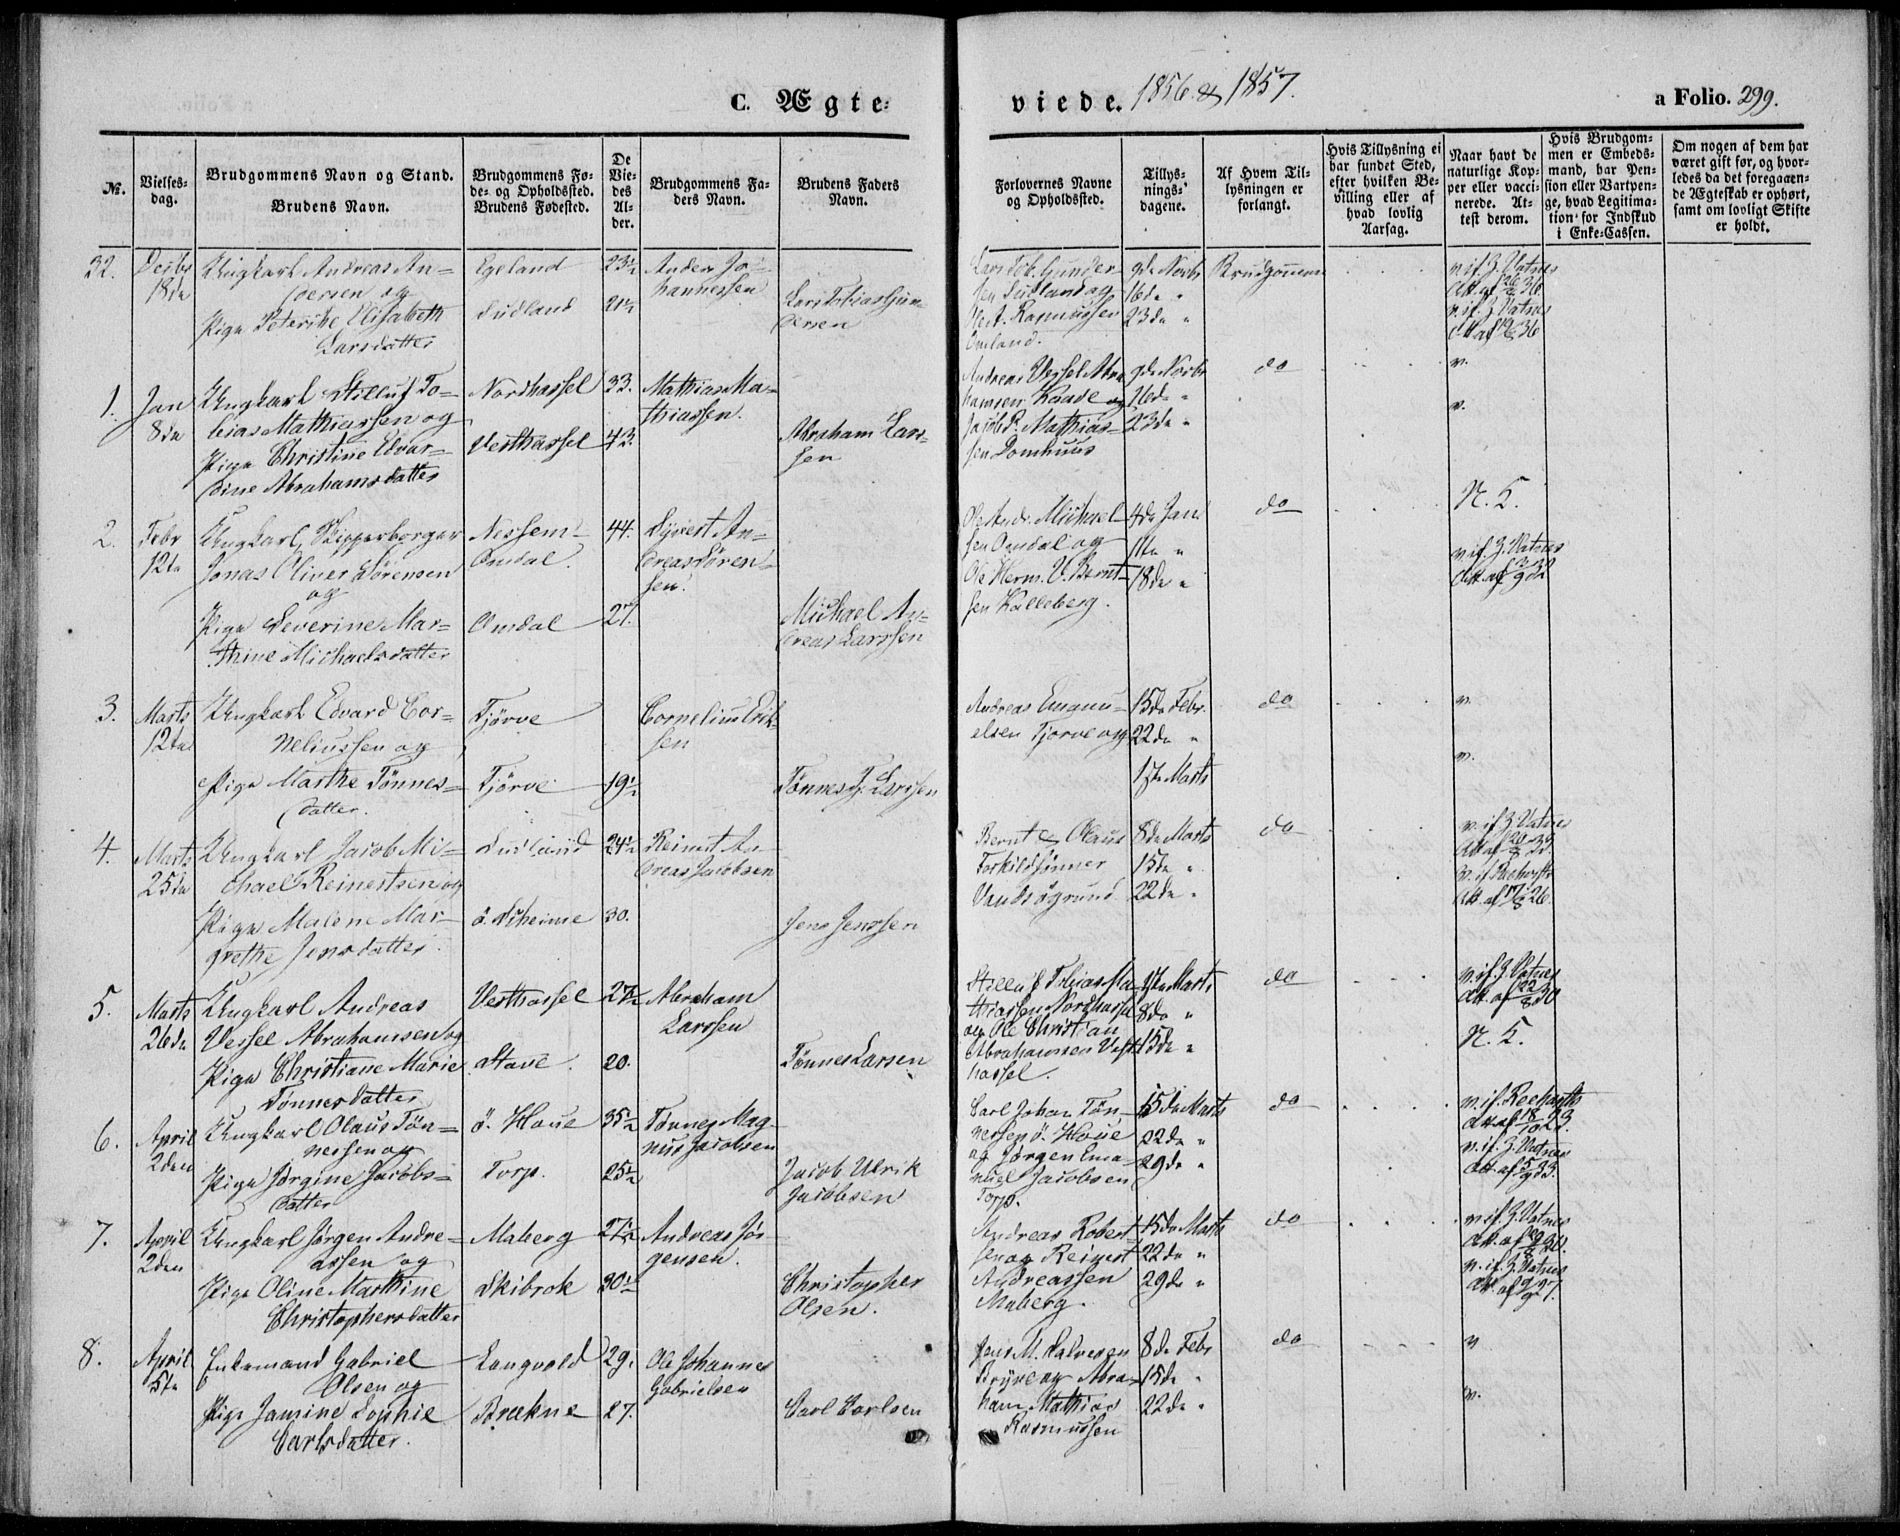 C. Ægte-
viede. 1856 & 1857.
a Folio. 299.
No.
Vielses-
dag.
Brudgommens Navn og Stand.
Brudens Navn.
Brudgommens Fø-
de- og Opholdssted.
Brudens Fødested.
De
Vie-
des
Al-
der.
Brudgommens Fa-
ders Navn.
Brudens Faders
Navn.
Forlovernes Navne
og Opholdssted.
Tillys-
nings-
dagene.
Af Hvem Til-
lysningen er
forlangt.
Hvis Tillysning ei
har fundet Sted,
efter hvilken Be-
villing eller af
hvad lovlig
Aarsag.
Naar havt de
naturlige Kop-
per eller vacci-
nerede. At-
test derom.
Hvis Brudgom-
men er Embeds-
mand, har Pen-
sion eller Vartpen-
ge, hvad Legitima-
tion for Indskud
i Enke-Cassen.
Om nogen af dem har
været gift før, og hvor-
ledes da det foregaaen-
de Ægteskab er ophørt,
samt om lovligt Skifte
er holdt.
32.
Decbr
18de
Ungkarl Andreas An-
dersen og
Pige Peterike Elisabeth
Larsdatter
Egeland
23½
Anders Jo-
hannessen
Lars Tobias Gun-
dersen
Lars Tob. Gunder-
sen
Rasmussen
Omland.
9de Novbr
16de "
23de "
Brudgommen
1.
Jan
8de
Ungkarl Stilluf To-
bias Mathiassen og
Pige Christine Edvar-
dine Abrahamsdatter
Nordhassel
Vesthassel
33.
43.
Mathias Ma-
thiassen.
Abraham Lars-
sen
Andreas Vessel Abra-
hamsen
Mathias-
sen Domhuus
9de Novbr
16de "
23de "
do
v.
v.
2.
Febr
12te
Ungkarl, Skipperborger
Jonas Oliver Sørensen
og
Pige Severine Mar-
thine Michaelsdatter
Omdal.
Omdal
44.
27.
Syvert An-
dreas Søren-
sen.
Michael An-
dreas Larssen
Ole Andr. Michael-
sen Omdal og
Ole Herm. V. Bernt-
sen Kalleberg.
4de Jan
11te "
18de "
do
N. K.
v. if. Z. Vatnes
3.
Marts
12te
Ungkarl Edvard Cor-
neliussen og
Pige Marthe Tønnes-
datter.
Tjörve
Tjörve
19½
Cornelius Erik-
sen
Tønnes T. Larssen
Andreas Emanu-
elsen Tjorve og
15de Febr.
22de "
1ste Marts
do
v.
v.
4.
Marts
25de
Ungkarl Jacob Mi-
chael Reinertsen og
Pige Malene Mar-
grethe Jensdatter.
24½
30.
Reinert An-
dreas Jacobsen
Jens Jenssen
Bernt & Olaus
Torkildsønner
8de Marts
15de "
22de "
do
v. if. Z. Vatnes
5.
Marts
26de
Ungkarl Andreas
Vessel Abrahamsen og
Pige Christiane Marie
Tønnesdatter
Vesthassel
Stave.
27½
20.
Abraham
Larssen
Tønnes Larsen
Stilluf Tobias Ma-
thiassen Nordhassel
og Ole Christian
Abrahamsen Vest-
hassel.
1ste Marts
8de "
15de "
do
v. if. Z. Vatnes
N. K.
6.
April
2den
Ungkarl Olaus Tøn-
nessen og
Pige Jørgine Jacobs-
datter
ö. Houe
Torp.
35½
25½
Tønnes Mag-
nus Jacobsen
Jacob Ulrik
Jacobsen
Carl Johan Tøn-
nessen ö. Houe
og Jørgen Ema-
nuel Jacobsen
Torp.
15de Marts
22de "
29de "
do
v. if. Z. Vatnes
7.
April
2den
Ungkarl Jørgen Andre-
assen og
Pige Oline Marthine
Christophersdatter
Maberg
Skibrok
27½
30½
Andreas Jør-
gensen.
Christopher
Olsen.
Andreas Robert-
sen og Reinert
Andreassen
Maberg.
15de Marts
22de "
29de "
do
v. if. Z. Vatnes
v. if. Z. Vatnes
8.
April
5te
Enkemand Gabriel
Olsen og
Pige Jansine Sophie
Carlsdatter.
Langvold
Brækne
29.
27.
Ole Johannes
Gabrielsen
Carl Carlsen
Jens M. Salvesen
Bryne og Abra-
ham Mathias
Rasmussen
8de Febr
15de "
22de "
do
v
v.